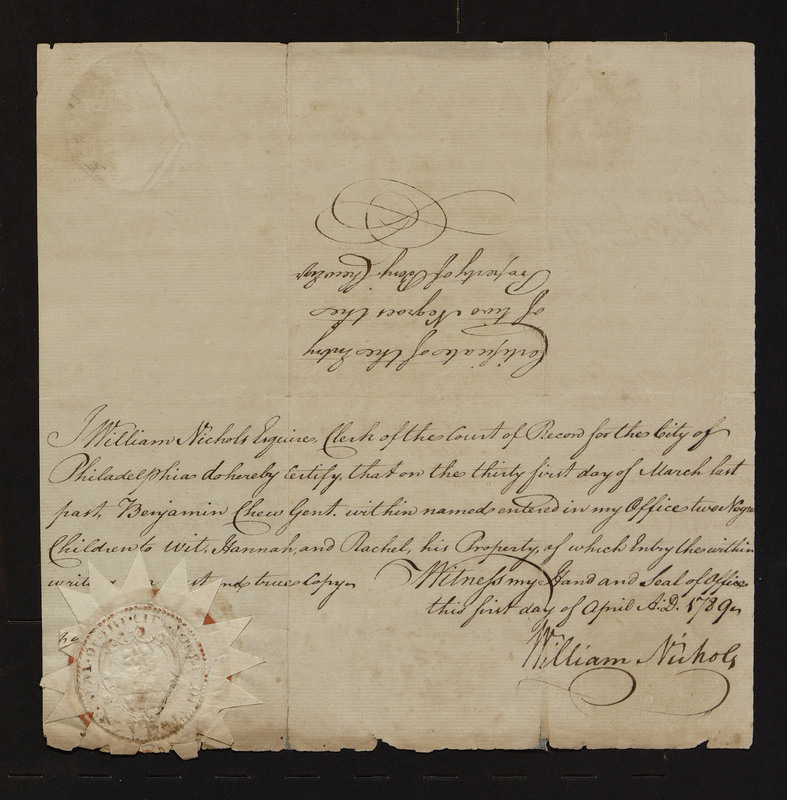 Certificate of the Entry
of two Negroes the
Property of Benj. Chew Esqr
I William Nichols Esquire, Clerk of the Court of Record for the City of
Philadelphia do hereby Certify, that on the thirty first day of March last
past, Benjamin Chew Gent. within named entered in my Office two Negro
Children to Wit, Hannah, and Rachel, his Property, of which Entry the within
is a true Copy. Witness my Hand and Seal of Office
this first day of April A.D. 1789.
William Nichols
SEAL OF THE CITY